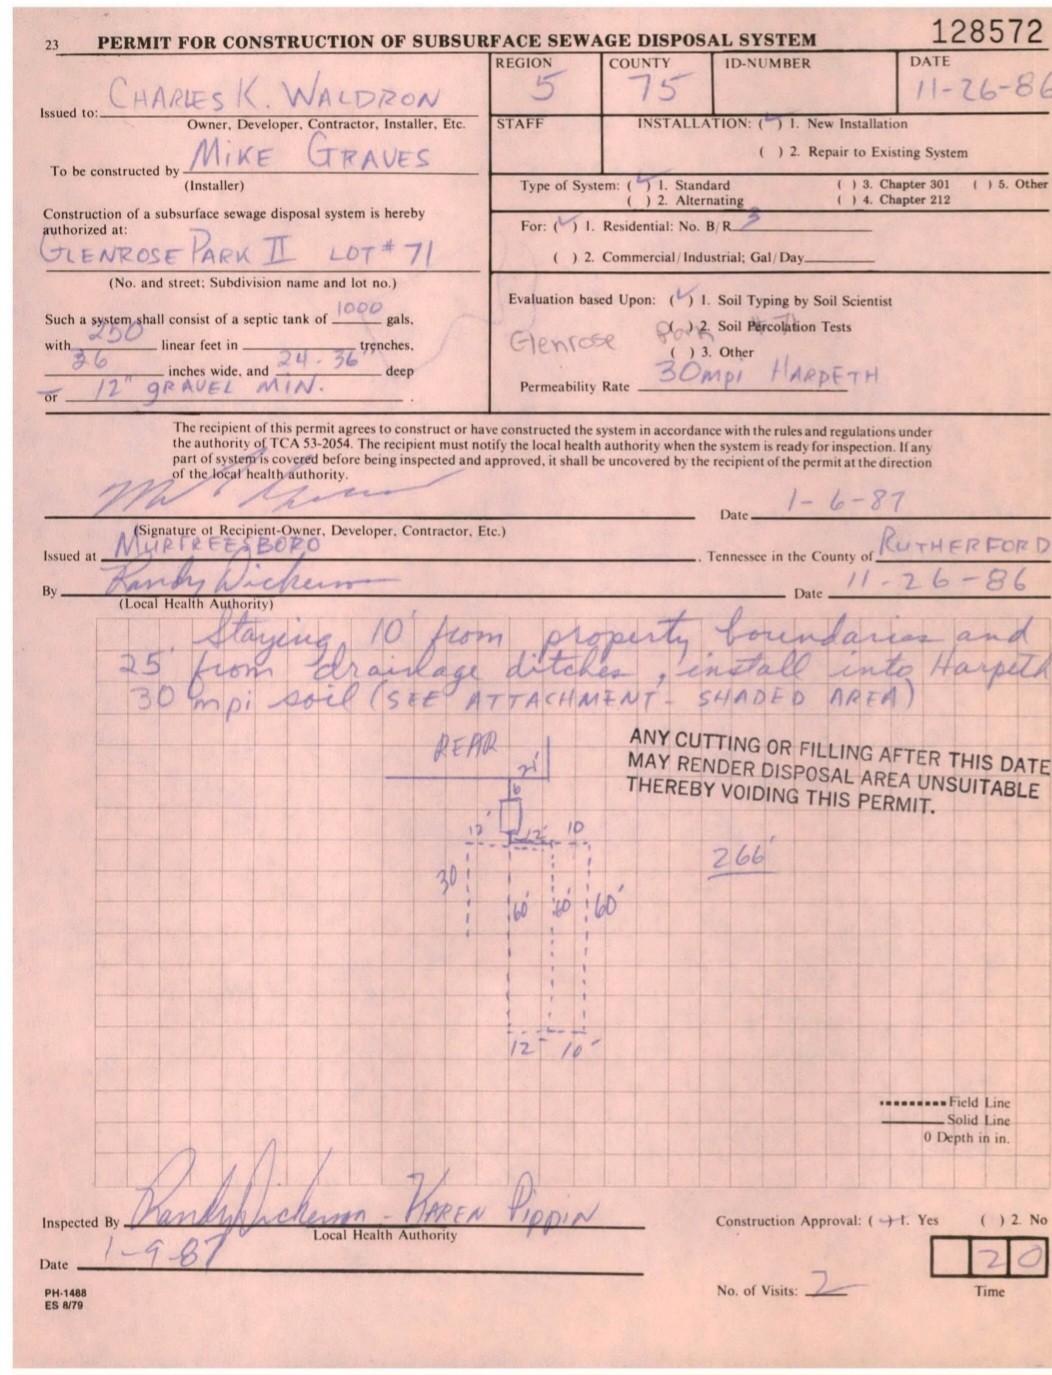 23 PERMIT FOR CONSTRUCTION OF SUBSURFACE SEWAGE DISPOSAL SYSTEM 128572
REGION COUNTY ID-NUMBER DATE
5 75 11-26-86
Issued to: CHARLES K. WALDRON
Owner, Developer, Contractor, Installer, Etc.
STAFF INSTALLATION: (✓) 1. New Installation
( ) 2. Repair to Existing System
To be constructed by MIKE GRAVES
(Installer)
Type of System: (✓) 1. Standard ( ) 3. Chapter 301 ( ) 5. Other
( ) 2. Alternating ( ) 4. Chapter 212
Construction of a subsurface sewage disposal system is hereby
authorized at:
GLENROSE PARK II LOT # 71
(No. and street; Subdivision name and lot no.)
For: (✓) 1. Residential: No. B/R 3
( ) 2. Commercial/Industrial; Gal/Day
Such a system shall consist of a septic tank of 1000 gals.
with 250 linear feet in trenches.
36 inches wide, and 24-36" deep
or 12" GRAVEL MIN.
Evaluation based Upon: (✓) 1. Soil Typing by Soil Scientist
( ) 2. Soil Percolation Tests
Glenrose Park
( ) 3. Other
Permeability Rate 30mpi HARPETH
The recipient of this permit agrees to construct or have constructed the system in accordance with the rules and regulations under
the authority of TCA 53-2054. The recipient must notify the local health authority when the system is ready for inspection. If any
part of system is covered before being inspected and approved, it shall be uncovered by the recipient of the permit at the direction
of the local health authority.
Date 1-6-87
(Signature of Recipient-Owner, Developer, Contractor, Etc.)
Issued at MURFREESBORO, Tennessee in the County of RUTHERFORD
By Randy Dickerson Date 11-26-86
(Local Health Authority)
Staying 10' from property boundaries and
25' from drainage ditches, install into Harpeth
30 mpi soil (SEE ATTACHMENT - SHADED AREA)
ANY CUTTING OR FILLING AFTER THIS DATE
MAY RENDER DISPOSAL AREA UNSUITABLE
THEREBY VOIDING THIS PERMIT.
REAR
21'
6
12' 12' 10
30
60' 60' 60'
12' 10'
266'
Field Line
Solid Line
0 Depth in in.
Inspected By Randy Dickerson - KAREN PIPPIN
Local Health Authority
Construction Approval: (✓) 1. Yes ( ) 2. No
Date 1-9-87
No. of Visits: 2
20
Time
PH-1488
ES 8/79